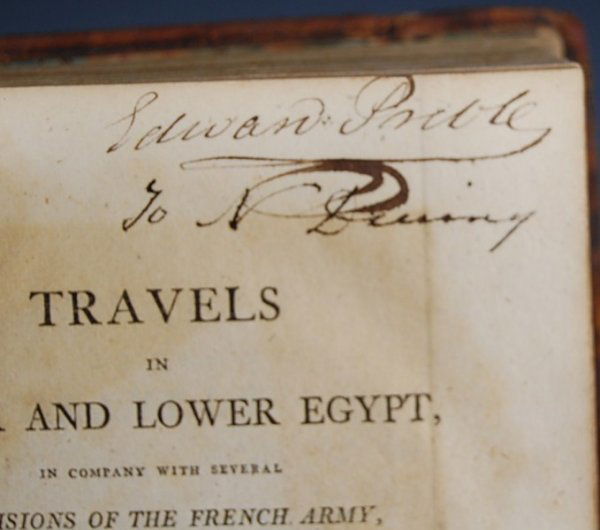 Edward Preble
To N Deering
TRAVELS
IN
R AND LOWER EGYPT,
IN COMPANY WITH SEVERAL
ISIONS OF THE FRENCH ARMY,